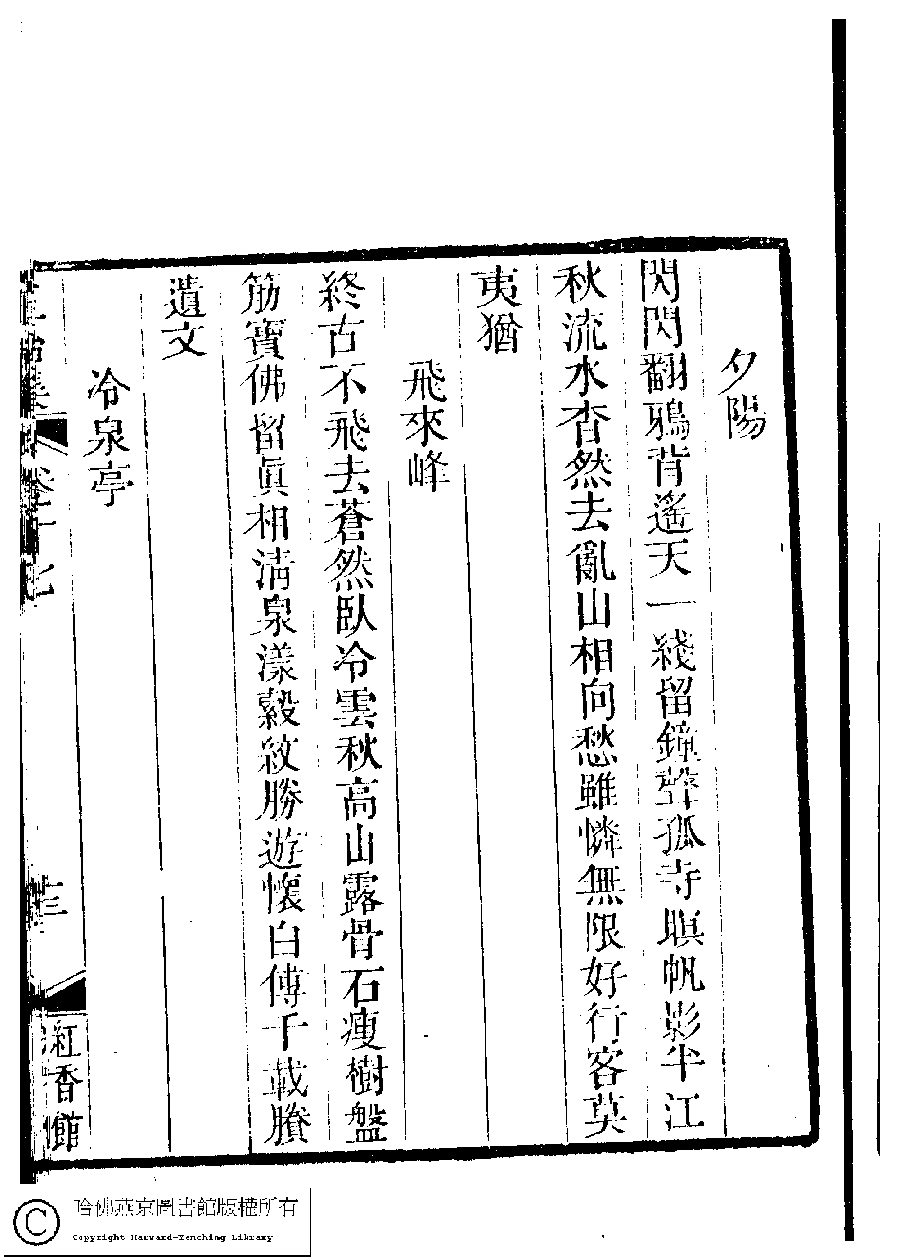 夕陽
閃閃翻鴉背遙天一綫留鐘聲孤寺暝帆影半江
秋流水杳然去亂山相向愁雖憐無限好行客莫
夷猶
飛來峰
終古不飛去蒼然臥冷雲秋高山露骨石瘦樹盤
筋寶佛留眞相淸泉漾縠紋勝遊懷白傅千載賸
遺文
冷泉亭
集 卷十七
三
紅香館
哈佛燕京圖書館版權所有
Copyright Harvard-Yenching Library